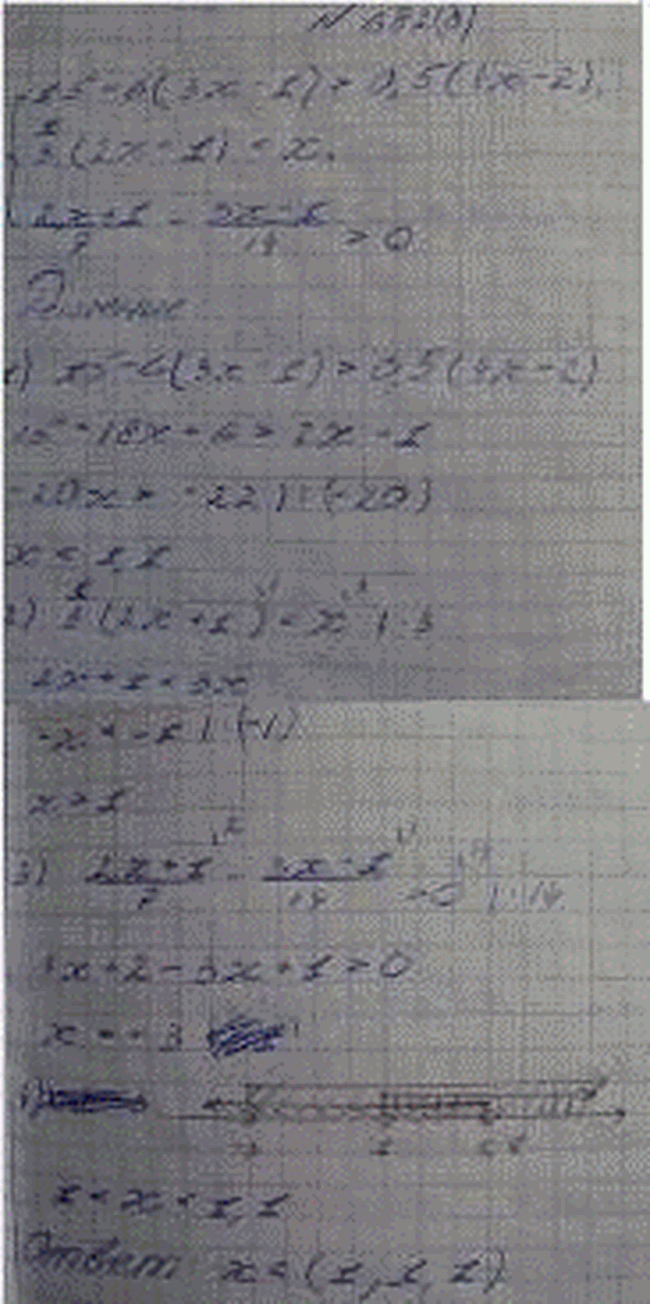 15-6(3x-1)>0,5(4x-2),
1/3(2x+1)<x,
(2x+1)/7 - (3x-1)/14 > 0
Решение
1) 15-6(3x-1)>0,5(4x-2)
15-18x+6>2x-1
-20x>-22 |:(-20)
x<1,1
2) 1/3(2x+1)<x |·3
2x+1<3x
-x<-1 |·(-1)
x>1
3) (2x+1)/7 - (3x-1)/14 >0 |·14
4x+2-3x+1>0
x>-3
-3 1 1,1
1<x<1,1
Ответ x=(1;1,1)